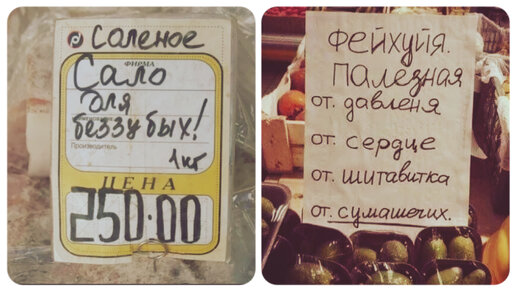 Соленое
ФИРМА
Сало
для
беззубых!
Производитель
1 кг
ЦЕНА
250.00
ФЕЙХУЙЯ.
ПОЛЕЗНАЯ
от. давленя
от. сердце
от. шитавитка
от. сумашечих.